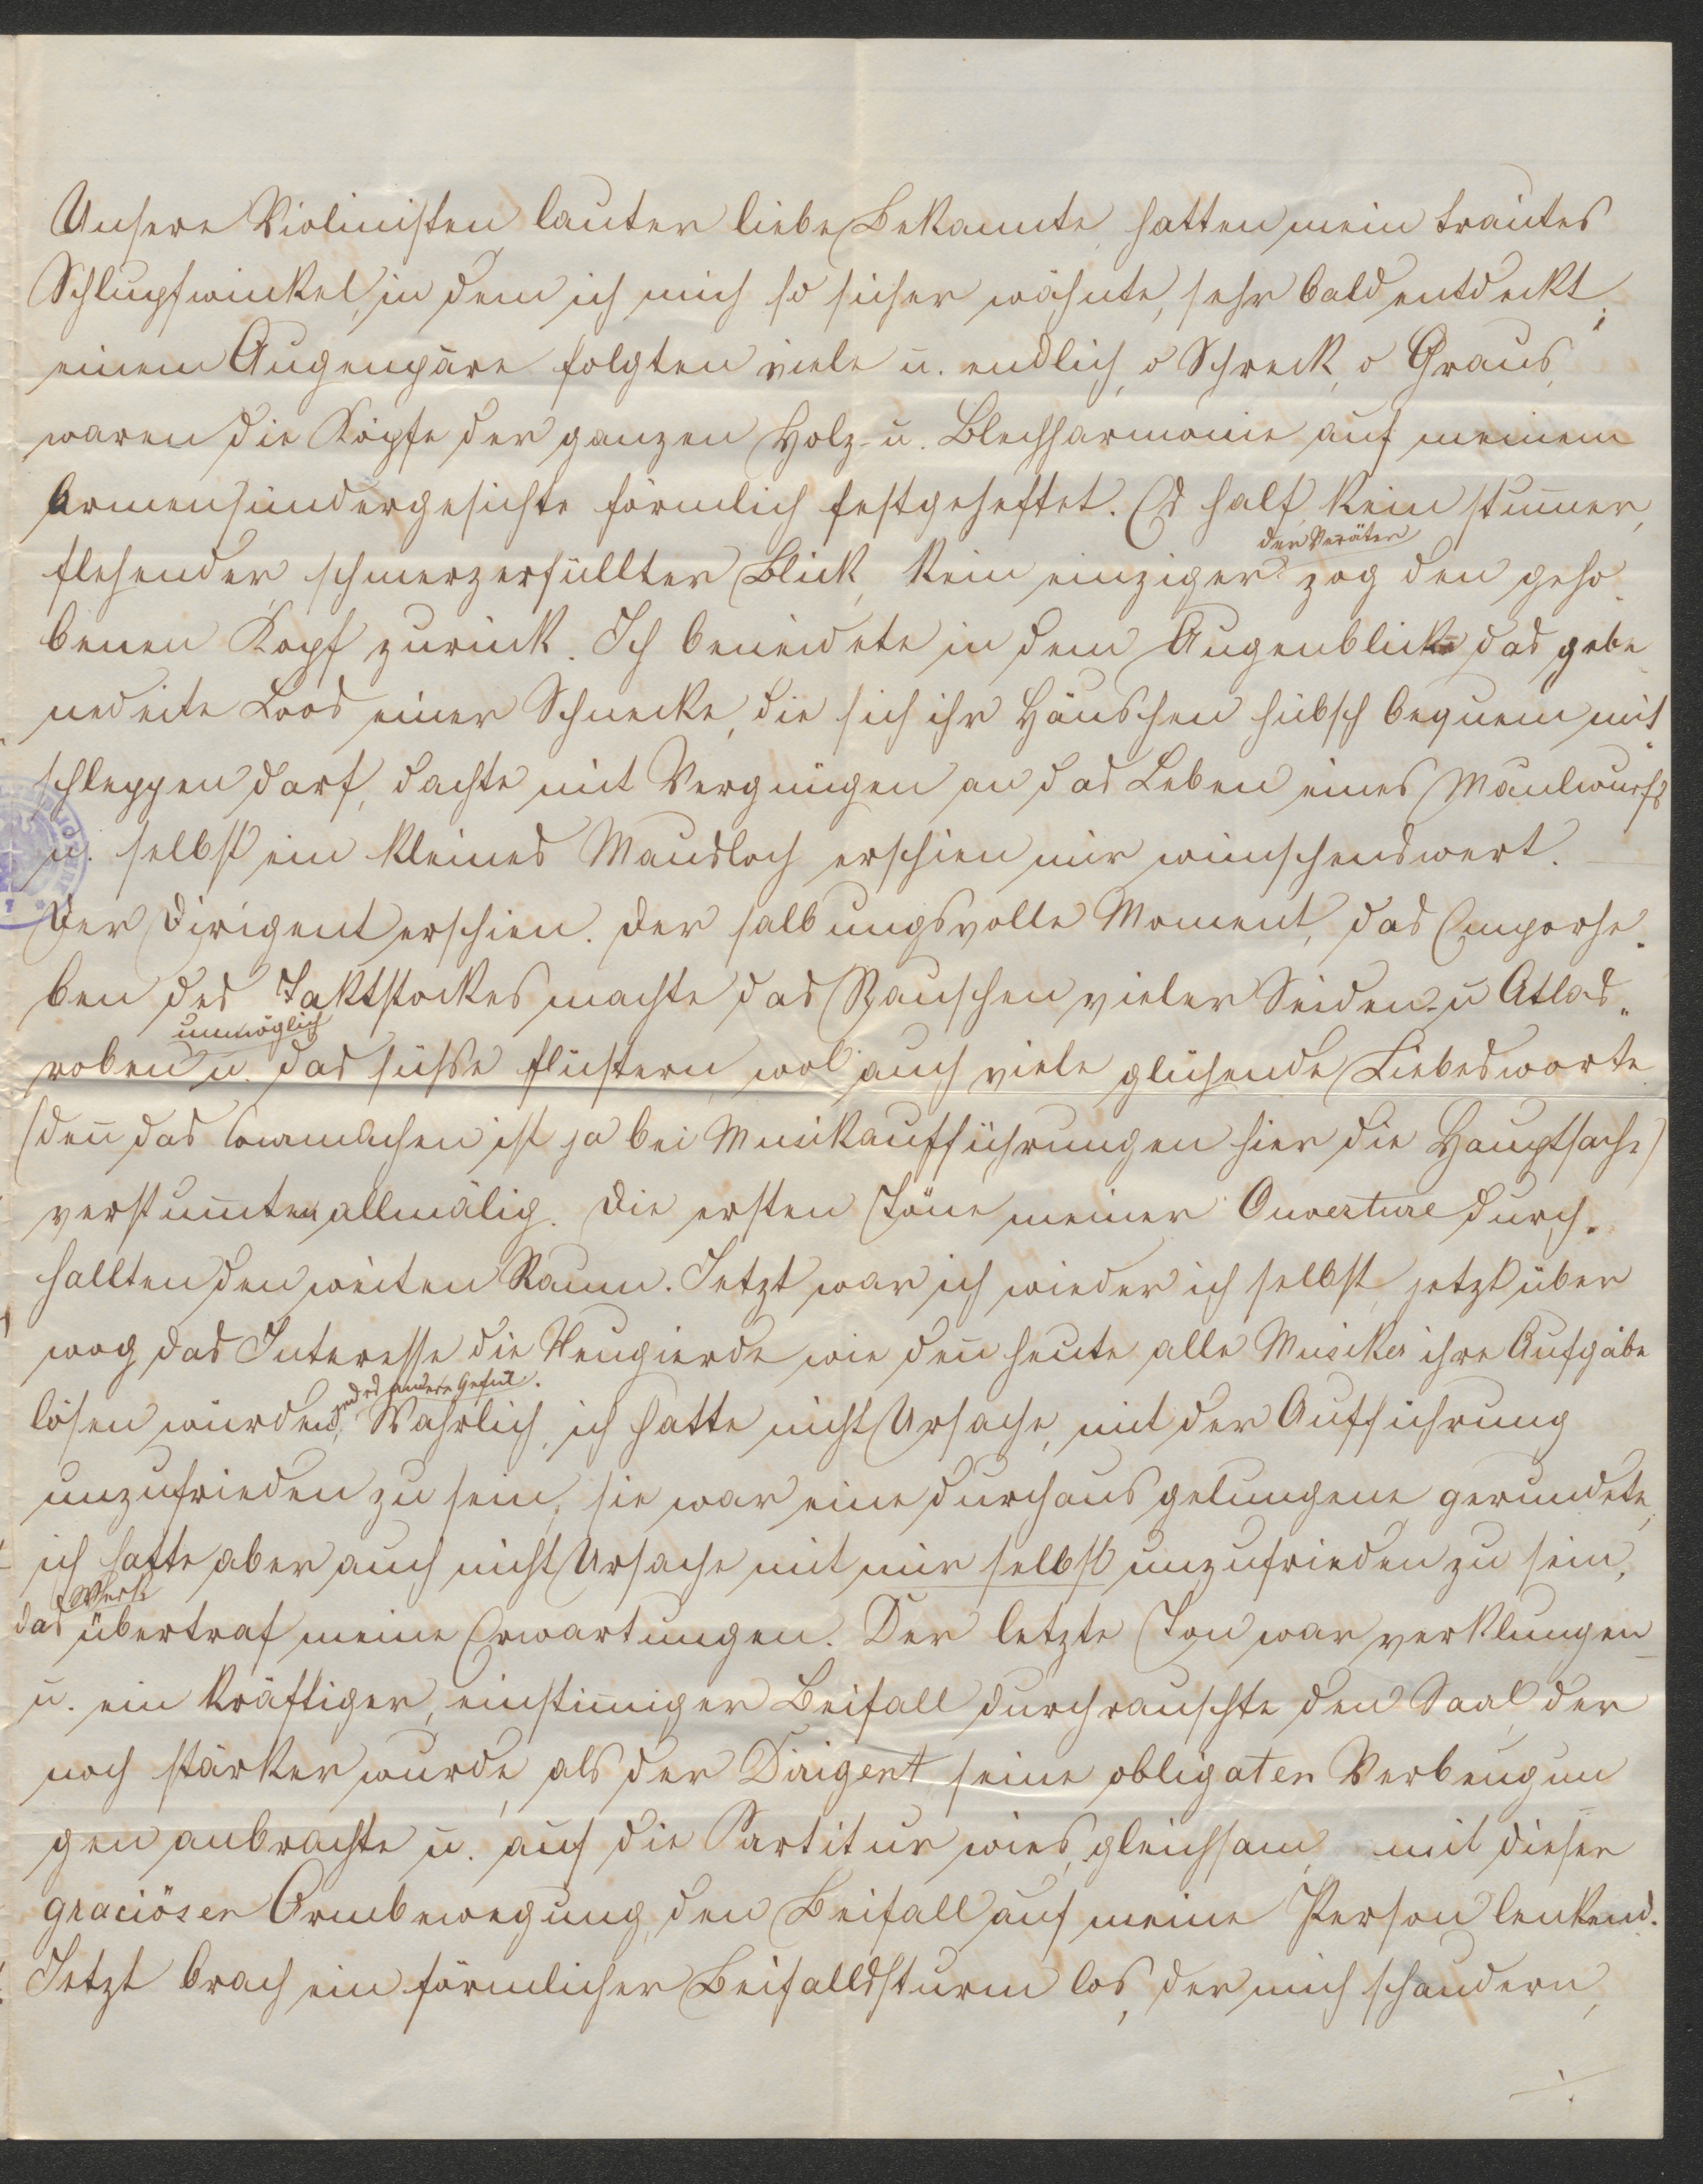 Unsere Violinisten lauter liebe Bekannte, hatten mein trautes
Schlupfwinkel, in dem ich mich so sicher wähnte, sehr bald entdeckt;
einem Augenpare folgten viele u. endlich, o Schreck, o Graus,
waren die Köpfe der ganzen Holz- u. Blechharmonie auf meinem
Armensündergesichte förmlich festgeheftet. Es half kein stum̅er,
der Veräter
flehender, schmerzerfüllter Blick, kein einziger zog den geho-
benen Kopf zurück. Ich beneidete in dem Augenblicke das gebe
nedeite Loos einer Schnecke, die sich ihr Häuschen hübsch bequem mit
schleppen darf, dachte mit Vergnügen an das Leben eines Maulwurfs
u. selbst ein kleines Mausloch erschien mir wünschenswert. —
Der Dirigent erschien. Der salbungsvolle Moment, das Emporhe-
ben des Taktstockes machte das Rauschen vieler Seiden- u Atlas-
unmöglich
roben u. das süsse flüstern, wol auch viele glühende Liebesworte
(den̅ das Courmachen ist ja bei Musikaufführungen hier die Hauptsache)
verstum̅ten allmälig. Die ersten Töne meiner Ouverture durch-
hallten den weiten Raum. Jetzt war ich wieder ich selbst, jetzt über
wog das Interesse die Neugierde wie den̅ heute alle Musiker ihre Aufgabe
jedes andere Gefül.
lösen würden, Wahrlich, ich hatte nicht Ursache, mit der Aufführung
unzufrieden zu sein, sie war eine durchaus gelungene gerundete,
ich hatte aber auch nicht Ursache mit mir selbst unzufrieden zu sein,
Werk
das übertraf meine Erwartungen. Der letzte Ton war verklungen
u. ein kräftiger, einstim̅iger Beifall durchrauschte den Saal, der
noch stärker wurde, als der Dirigent seine obligaten Verbeugun
gen anbrachte u. auf die Partitur wies, gleichsam mit dieser
graciösen Armbewegung, den Beifall auf meine Person lenkend.
Jetzt brach ein förmlicher Beifallssturm los, der mich schaudern,
./.